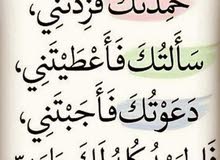 حَمِدْتُكَ فَزِدْتَنِي،
سَأَلْتُكَ فَأَعْطَيْتَنِي،
دَعَوْتُكَ فَأَجَبْتَنِي،